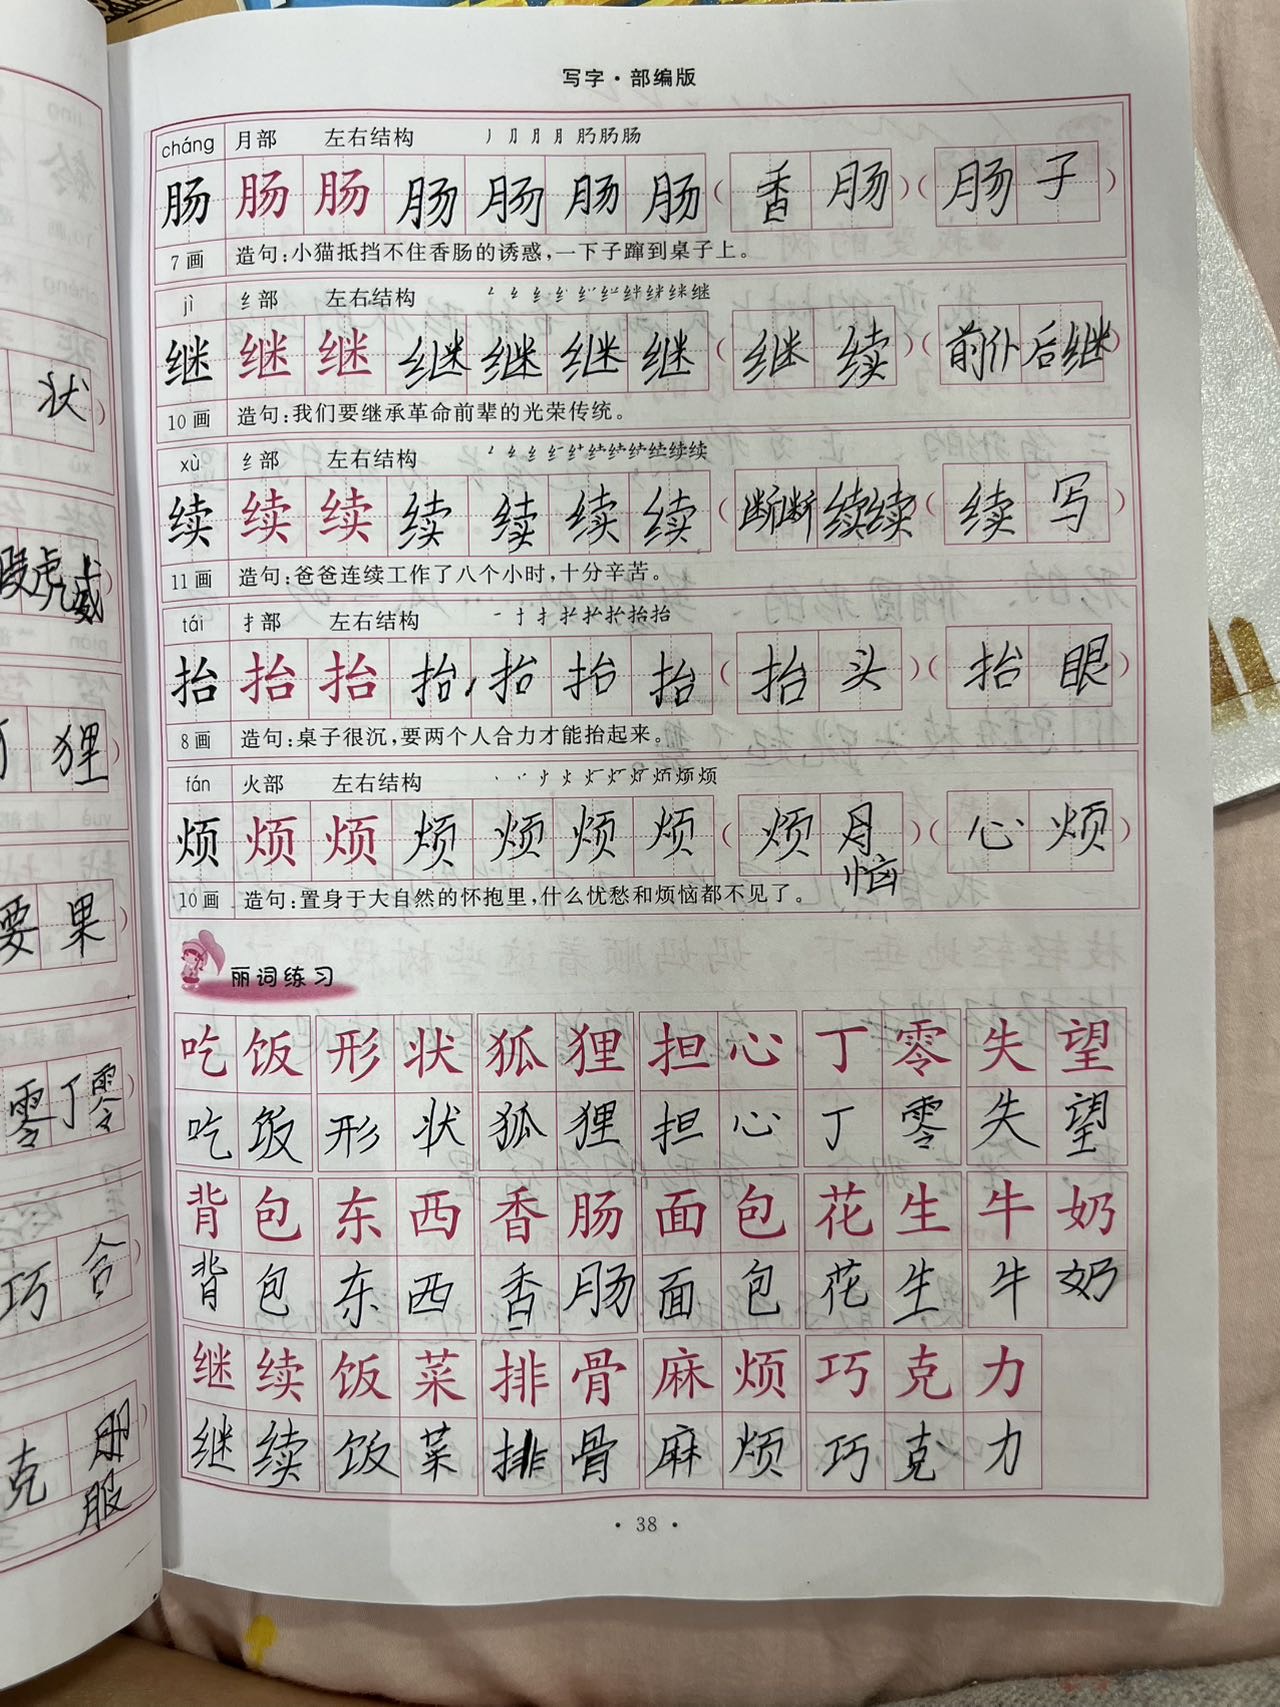 写字·部编版
cháng 月部 左右结构
肠 肠 肠 肠 肠 肠 肠 (香肠)(肠子)
7画 造句:小猫抵挡不住香肠的诱惑,一下子蹿到桌子上。
jì 纟部 左右结构
继 继 继 继 继 继 继 (继续)(前仆后继)
10画 造句:我们要继承革命前辈的光荣传统。
xù 纟部 左右结构
续 续 续 续 续 续 续 (断断续续)(续写)
11画 造句:爸爸连续工作了八个小时,十分辛苦。
tái 扌部 左右结构
抬 抬 抬 抬 抬 抬 抬 (抬头)(抬眼)
8画 造句:桌子很沉,要两个人合力才能抬起来。
fán 火部 左右结构
烦 烦 烦 烦 烦 烦 烦 (烦恼)(心烦)
10画 造句:置身于大自然的怀抱里,什么忧愁和烦恼都不见了。
丽词练习
吃饭 形状 狐狸 担心 丁零 失望
吃饭 形状 狐狸 担心 丁零 失望
背包 东西 香肠 面包 花生 牛奶
背包 东西 香肠 面包 花生 牛奶
继续 饭菜 排骨 麻烦 巧克力
继续 饭菜 排骨 麻烦 巧克力
·38·
状
虎威
狸
要果
零丁零
巧合
克服